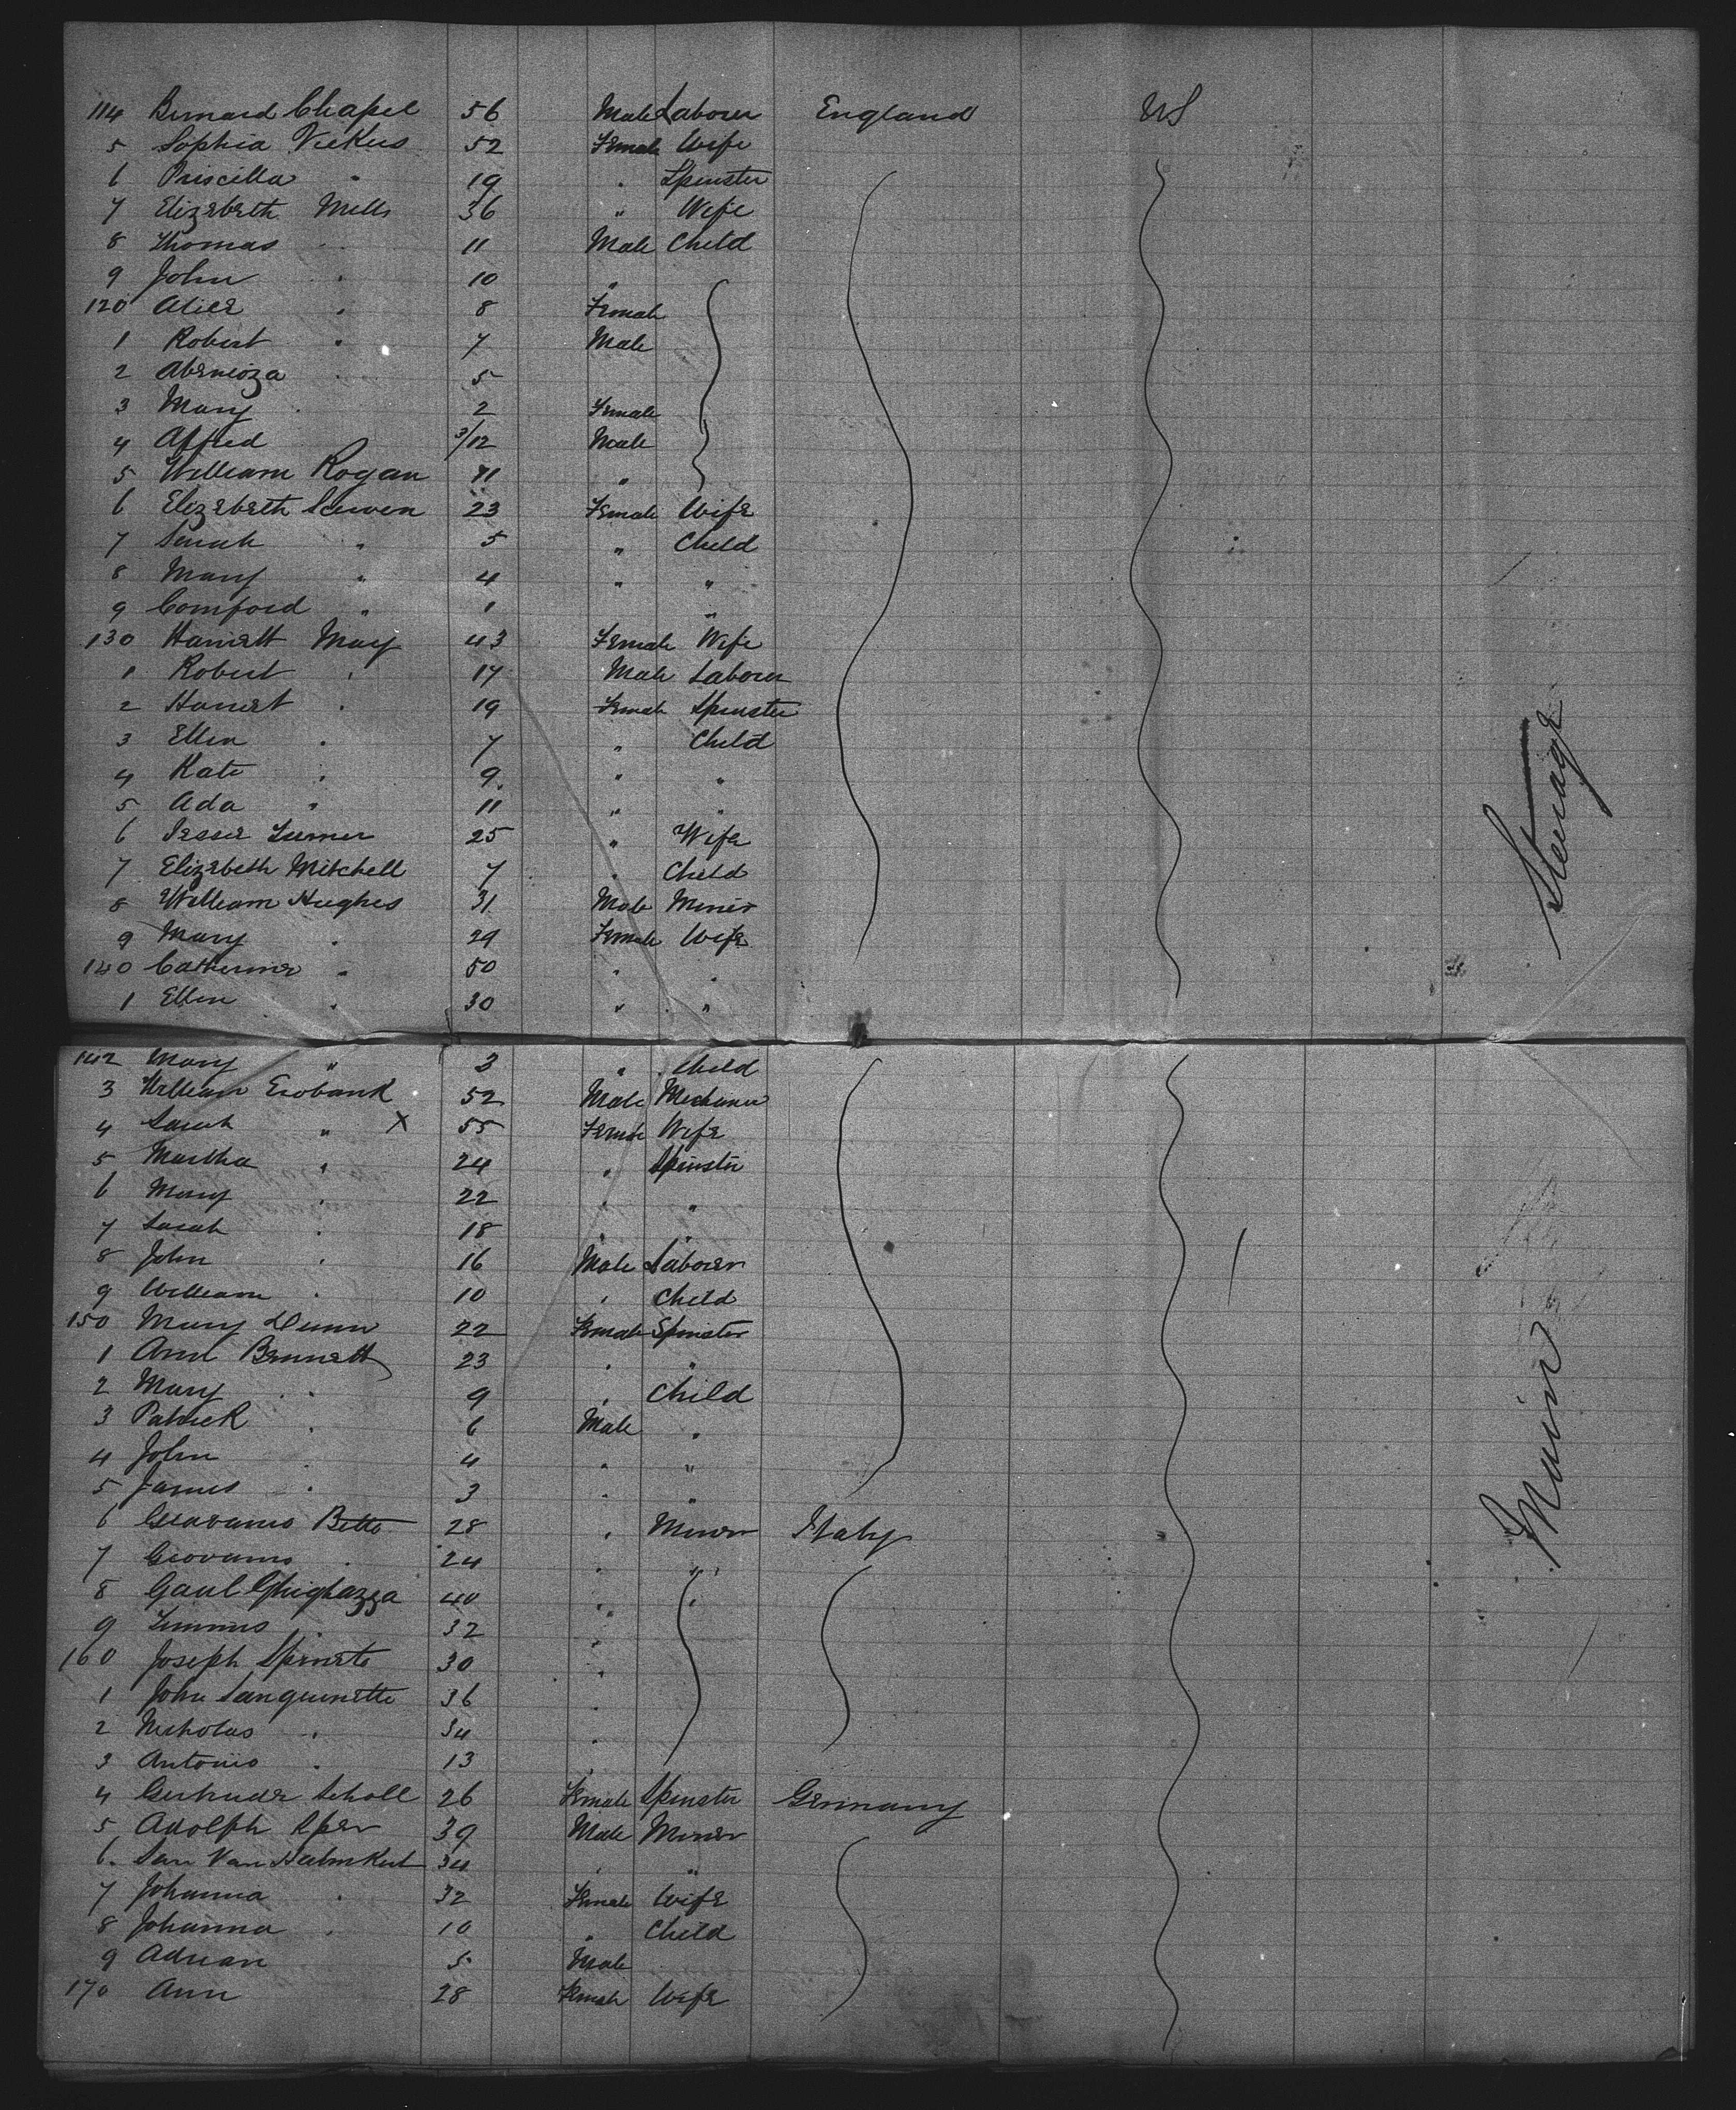 114 Bernard Chapel 56 Male Laborer England US
5 Sophia Vickers 52 Female Wife
6 Priscilla " 19 " Spinster
7 Elizabeth Mills 36 " Wife
8 Thomas 11 Male Child
9 John " 10 "
120 Alice " 8 Female
1 Robert " 7 Male
2 5
3 Mary " 2 Female
4 Alfred 3/12 Male
5 William Rogan 11 "
6 Elizabeth 23 Female Wife
7 Sarah " 5 " Child
8 Mary " 4 " "
9 Comford " 1 "
130 Harriett May 43 Female Wife
1 Robert " 17 Male Laborer
2 Harriet " 19 Female Spinster
3 Ellen " 7 " Child
4 Kate " 9 " "
5 Ada " 11 " "
6 Jesse Turner 25 " Wife
7 Elizabeth Mitchell 7 " Child
8 William Hughes 31 Male Miner
9 Mary " 29 Female Wife
140 Catherine " 50 " "
1 Ellen " 30 " "
Steerage
142 Mary " 3 " Child
3 William Ewbank 52 Male Mechanic
4 Sarah " X 55 Female Wife
5 Martha " 24 " Spinster
6 Mary " 22 " "
7 Sarah " 18 " "
8 John " 16 Male Laborer
9 William " 10 " Child
150 Mary Dunn 22 Female Spinster
1 Ann Bennett 23 " "
2 Mary " 9 " Child
3 Patrick " 6 Male "
4 John " 4 " "
5 James " 3 " "
6 Betto 28 " Miner Italy
7 Giovanni " 24 " "
8 Ghighazza 40 " "
9 32 "
160 Joseph 30 "
1 John Sanguinette 36 "
2 Nicholas " 34 "
3 Antonio " 13 "
4 Gertrude Scholl 26 Female Spinster Germany
5 Adolph 39 Male Miner
6 Van 34 " "
7 Johanna " 32 Female Wife
8 Johanna " 10 " Child
9 Adrian 5 Male
170 Ann 28 Female Wife